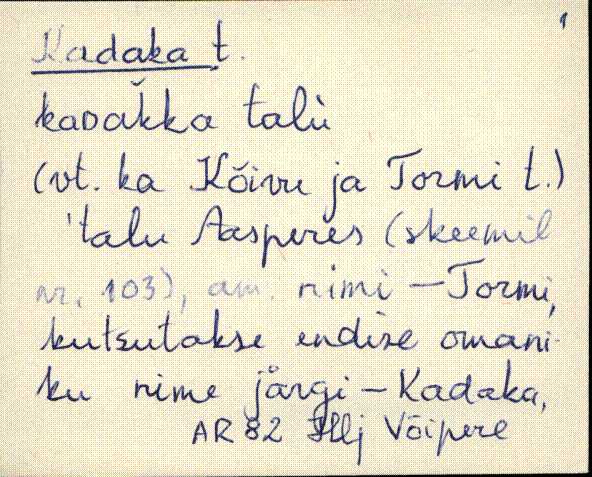 1
Kadaka t.
kaᴅak̆ka talù
(vt. ka Kõivu ja Tormi t.)
'talu Aasperes (skeemil
nr. 103), am. nimi – Tormi,
kutsutakse endise omani-
ku nime järgi – Kadaka,
AR 82 Hlj Võipere